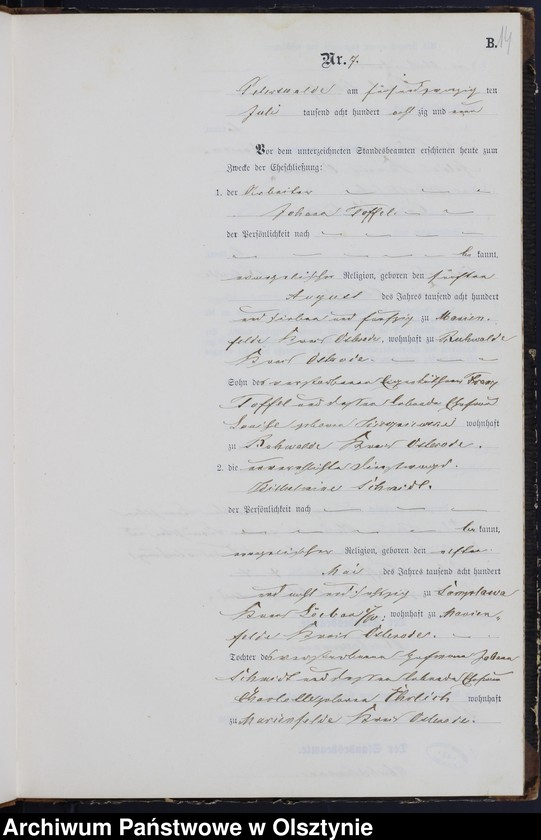 B. 14
Nr. 7.
Peterswalde am fünfundzwanzig ten
Juli tausend acht hundert acht zig und
Vor dem unterzeichneten Standesbeamten erschienen heute zum
Zwecke der Eheschließung:
1. der Arbeiter
Johann Toffel
der Persönlichkeit nach
be kannt,
evangelischer Religion, geboren den fünften
August des Jahres tausend acht hundert
und sieben und fünfzig zu Marien-
felde Kreis Osterode, wohnhaft zu Buhwalde
Kreis Osterode.
Sohn des verstorbenen Eigenkäthners
Toffel und dessen lebende Ehefrau
Louise geborene wohnhaft
zu Buhwalde Kreis Osterode.
2. die unverehelichte Dienstmagd
Wilhelmine Schmidt.
der Persönlichkeit nach
be kannt,
evangelischer Religion, geboren den
Mai des Jahres tausend acht hundert
und acht und sechzig zu
Kreis Löbau wohnhaft zu Marien-
felde Kreis Osterode.
Tochter des verstorbenen Johann
Schmidt und dessen lebende Ehefrau
geborene Ehrlich wohnhaft
zu Marienfelde Kreis Osterode.
Archiwum Państwowe w Olsztynie